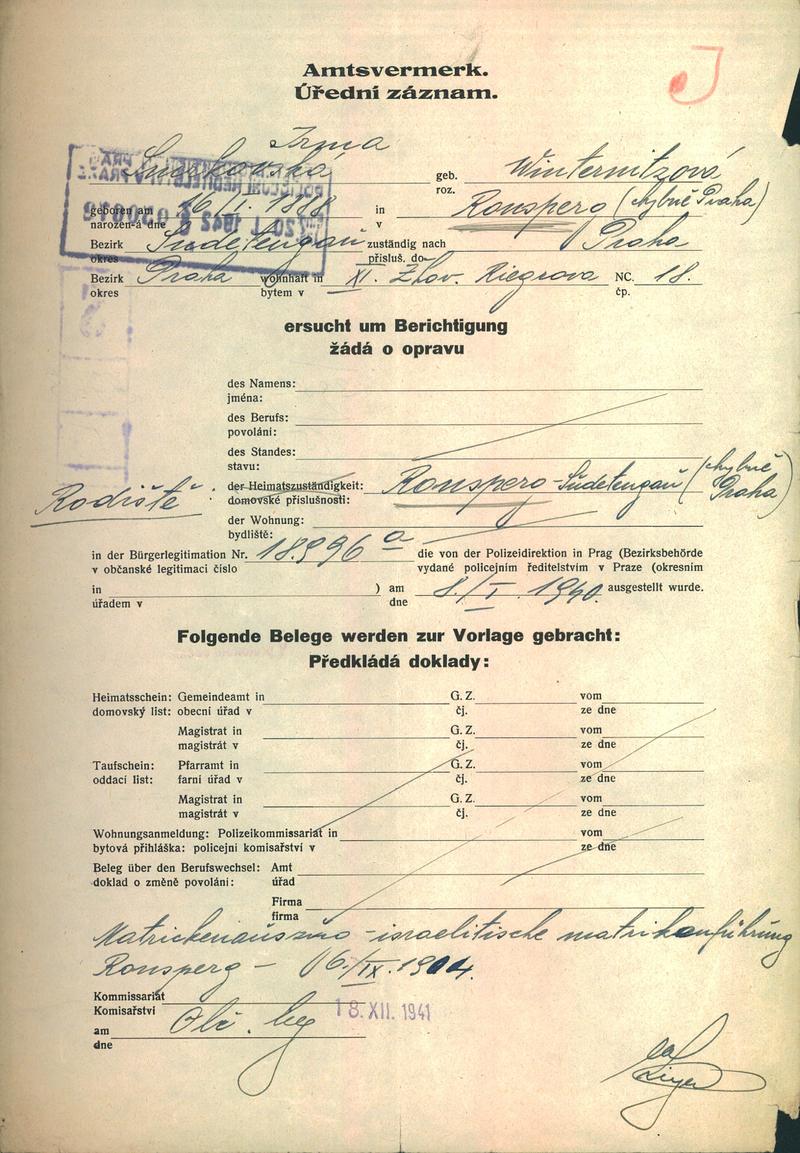 Amtsvermerk.
Úřední záznam.
J
Irma
Smrkovská geb. Winternitzová
roz.
geboren am 16/I. 1888 in Ronsperg (chybně Praha)
narozen-á dne v
Bezirk Sudetengau zuständig nach Praha
okres přísluš. do
Bezirk Praha wohnhaft in XI. Žkov. Riegrova NC. 18.
okres bytem v čp.
ersucht um Berichtigung
žádá o opravu
des Namens:
jména:
des Berufs:
povolání:
des Standes:
stavu:
Rodiště der Heimatszuständigkeit: Ronsperg - Sudetengau (chybně Praha)
domovské příslušnosti:
der Wohnung:
bydliště:
in der Bürgerlegitimation Nr. 18.996 a die von der Polizeidirektion in Prag (Bezirksbehörde
v občanské legitimaci číslo vydané policejním ředitelstvím v Praze (okresním
in ) am 8./I. 1940. ausgestellt wurde.
úřadem v dne
Folgende Belege werden zur Vorlage gebracht:
Předkládá doklady:
Heimatsschein: Gemeindeamt in G. Z. vom
domovský list: obecní úřad v čj. ze dne
Magistrat in G. Z. vom
magistrát v čj. ze dne
Taufschein: Pfarramt in G. Z. vom
oddací list: farní úřad v čj. ze dne
Magistrat in G. Z. vom
magistrát v čj. ze dne
Wohnungsanmeldung: Polizeikommissariat in vom
bytová přihláška: policejní komisařství v ze dne
Beleg über den Berufswechsel: Amt
doklad o změně povolání: úřad
Firma
firma
Matrickenauszug - israelitische matrikenführung
Ronsperg - 16./IX. 1904.
Kommissariat
Komisařství
Obč. leg 18. XII. 1941
am
dne